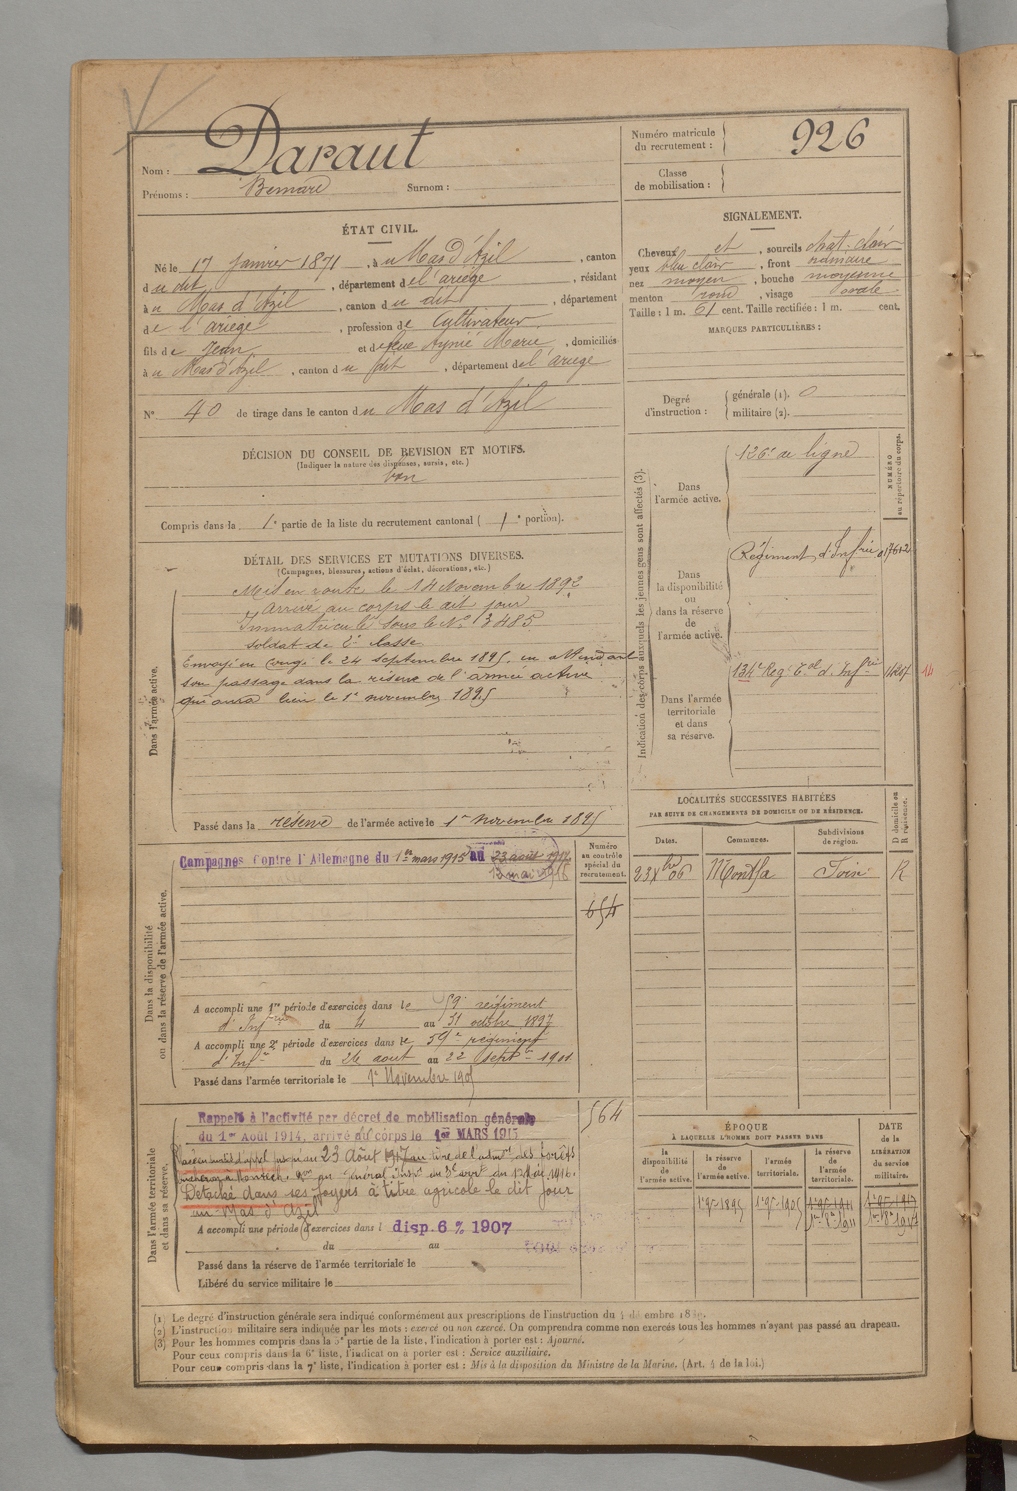 Nom : Daraut
Prénoms : Bernard Surnom :
Numéro matricule du recrutement : 926
Classe de mobilisation :
ÉTAT CIVIL.
Né le 17 Janvier 1871, à u Mas d'Azil, canton
d u dit, département de l'ariège, résidant
à u Mas d'Azil, canton d u dit, département
de l'ariege, profession de Cultivateur
fils de Jean et de feue Aynié Marie, domiciliés
à u Mas d'Azil, canton d u dit, département de l'ariege
N° 40 de tirage dans le canton du Mas d'Azil
SIGNALEMENT.
Cheveux et, sourcils chat. clair
yeux bleu clair, front ordinaire
nez moyen, bouche moyenne
menton rond, visage ovale
Taille : 1 m. 61 cent. Taille rectifiée : 1 m. cent.
MARQUES PARTICULIÈRES :
Degré d'instruction : générale (1). 0
militaire (2).
DÉCISION DU CONSEIL DE REVISION ET MOTIFS.
(Indiquer la nature des dispenses, sursis, etc.)
bon
Compris dans la 1e partie de la liste du recrutement cantonal ( 1e portion).
DÉTAIL DES SERVICES ET MUTATIONS DIVERSES.
(Campagnes, blessures, actions d'éclat, décorations, etc.)
Dans l'armée active.
Mis en route le 14 Novembre 1892
Arrivé au corps le dit jour
Immatriculé sous le N° 3485
soldat de 2e classe
Envoyé en congé le 24 septembre 1895, en attendant
son passage dans la réserve de l'armée active
qui aura lieu le 1er novembre 1895
Passé dans la réserve de l'armée active le 1er Novembre 1895
Indication des corps auxquels les jeunes gens sont affectés (3).
NUMÉRO au répertoire du corps.
Dans l'armée active.
126e de ligne
Dans la disponibilité ou dans la réserve de l'armée active.
Régiment d'Infrie
Dans l'armée territoriale et dans sa réserve.
134e Reg. Tal d'Infrie
LOCALITÉS SUCCESSIVES HABITÉES
PAR SUITE DE CHANGEMENTS DE DOMICILE OU DE RÉSIDENCE.
Dates. Communes. Subdivisions de région. D domicile ou R résidence.
23 Xbre 06 Montfa Foix R
Dans la disponibilité ou dans la réserve de l'armée active.
Campagnes Contre l'Allemagne du 1er mars 1915 au 23 août 1917
12 mai 1916
Numéro au contrôle spécial du recrutement.
654
A accompli une 1re période d'exercices dans le 59e régiment
d'Infrie du 4 au 31 octobre 1897
A accompli une 2e période d'exercices dans le 59e régiment
d'Infie du 26 août au 22 septbre 1901
Passé dans l'armée territoriale le 1er Novembre 1905
564
Dans l'armée territoriale et dans sa réserve.
Rappelé à l'activité par décret de mobilisation générale
du 1er Août 1914, arrivé au corps le 1er MARS 1915
23 Août 1917 au titre de l'adm. des Forêts
Détaché dans ses foyers à titre agricole le dit jour
au Mas d'Azil
A accompli une période d'exercices dans l disp. 6 % 1907
du au
Passé dans la réserve de l'armée territoriale le
Libéré du service militaire le
ÉPOQUE
À LAQUELLE L'HOMME DOIT PASSER DANS
la disponibilité de l'armée active. la réserve de l'armée active. l'armée territoriale. la réserve de l'armée territoriale.
DATE de la LIBÉRATION du service militaire.
1 9bre 1895 1 9bre 1905 1 9bre 1911 1 9bre 1917
(1) Le degré d'instruction générale sera indiqué conformément aux prescriptions de l'instruction du 4 décembre 1889.
(2) L'instruction militaire sera indiquée par les mots : exercé ou non exercé. On comprendra comme non exercés tous les hommes n'ayant pas passé au drapeau.
(3) Pour les hommes compris dans la 5e partie de la liste, l'indication à porter est : Ajourné.
Pour ceux compris dans la 6e liste, l'indication à porter est : Service auxiliaire.
Pour ceux compris dans la 7e liste, l'indication à porter est : Mis à la disposition du Ministre de la Marine. (Art. 4 de la loi.)